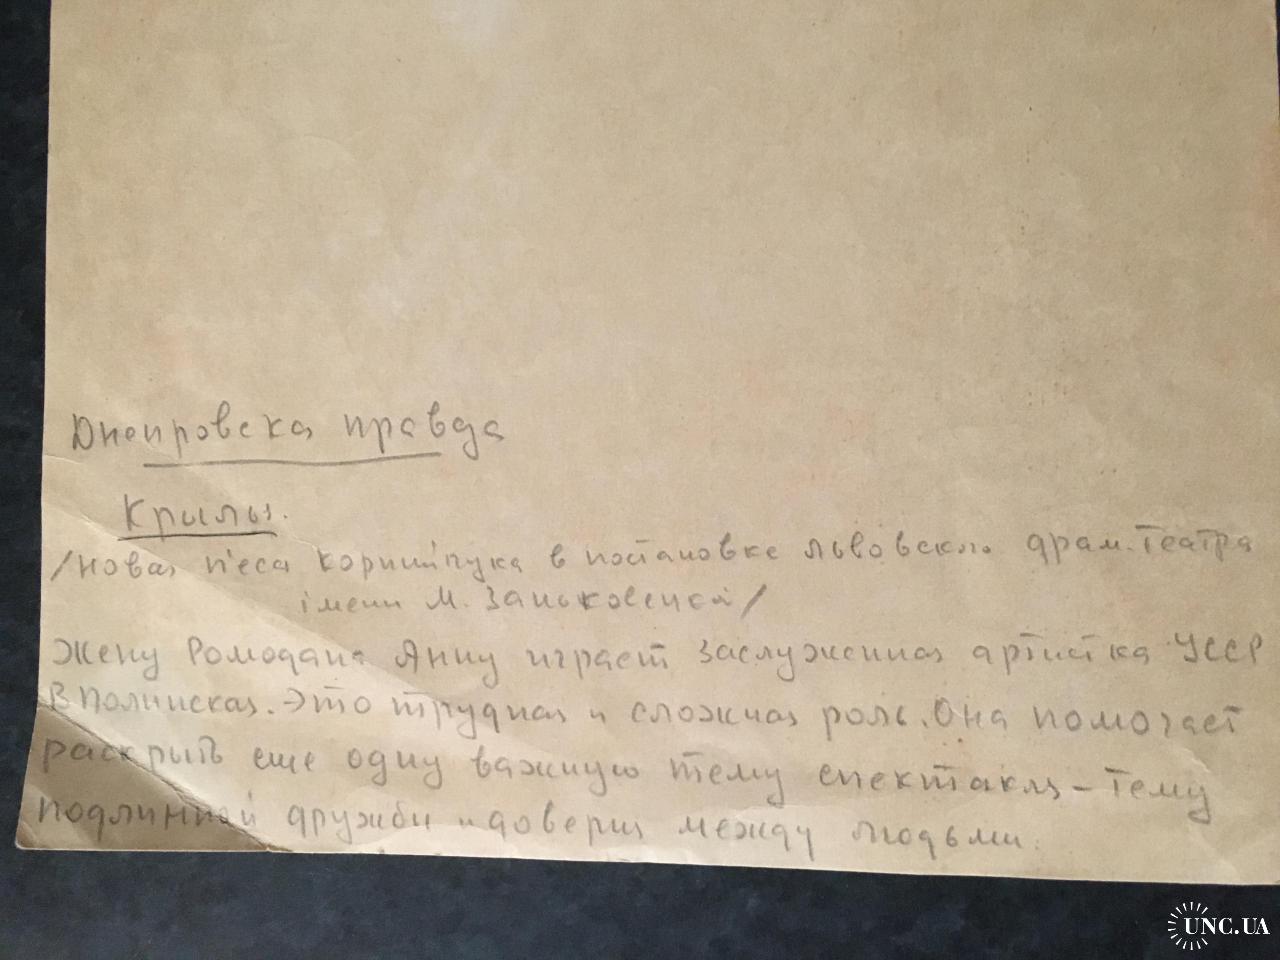 Днепровска правда
Крылья.
/новая п'еса Корнийчука в постановке львовского драм. театра
імени М. Заньковецкой/
Жену Ромодана Анну играет заслуженная артистка УССР
В Полинская. Это трудная и сложная роль. Она помогает
раскрыть еще одну важную тему спектакля – тему
подлинной дружби и доверия между людьми.
UNC.UA